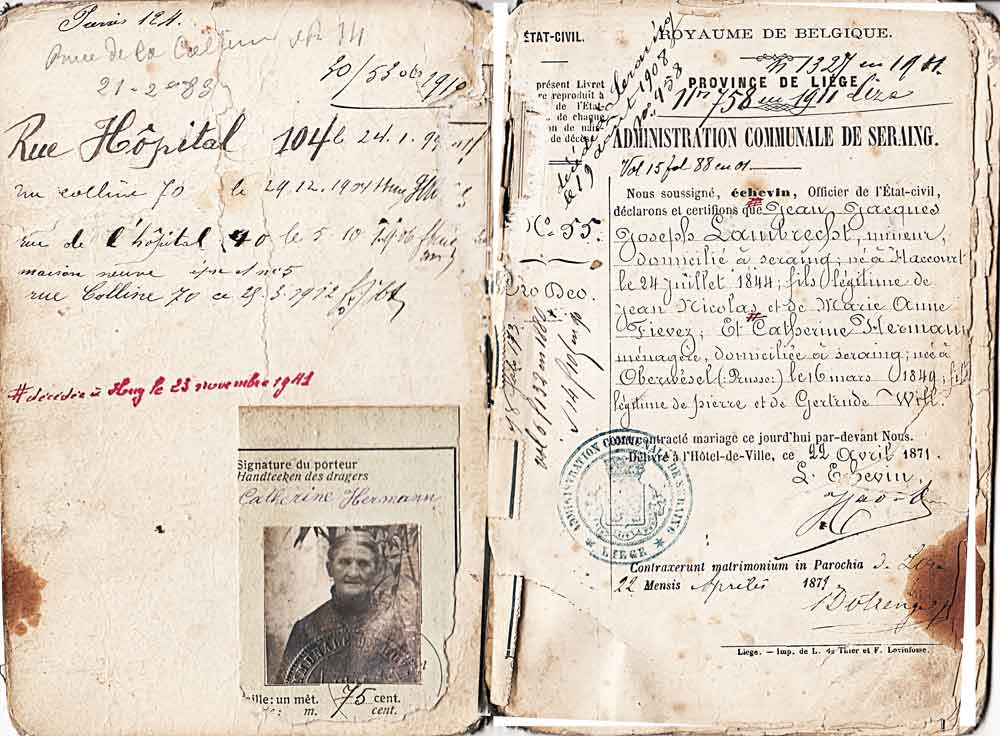 Rue de la Colline N° 74
21-2-83
30/53
Rue Hôpital 104 le 24.1.99
rue colline 70 le 29.12.1904 Huy
rue de l'hôpital 40 le 5 10
maison neuve
rue Colline 70 ce 1912
# décédée à Huy le 23 novembre 1941
Signature du porteur
Handteeken des dragers
Catherine Hermann
aille: un mèt. 75 cent.
m. cent.
ÉTAT-CIVIL.
présent Livret
re reproduit à
de l'État-
de chaque
on de nais-
de décès
décédé à Seraing
le 19 1908
n° 458
N° 55.
Pro Deo.
ROYAUME DE BELGIQUE.
N 1327 en 1911.
PROVINCE DE LIÉGE
N° 758 en 1911
ADMINISTRATION COMMUNALE DE SERAING.
Vol 15 fol 88 en 01
Nous soussigné, échevin, Officier de l'État-civil,
déclarons et certifions que Jean Jacques
Joseph Lambrecht, mineur,
domicilié à seraing; né à Haccourt
le 24 juillet 1844; fils légitime de
jean Nicolas et de Marie Anne
Fievez; Et Catherine Hermann
ménagère, domiciliée à seraing; née à
Oberwésel (:Prusse:) le 16 mars 1849; fille
légitime de pierre et de Gertrude Will.
contracté mariage ce jourd'hui par-devant Nous.
Délivré à l'Hôtel-de-Ville, ce 22 Avril 1871.
L'Echevin,
ADMINISTRATION COMMUNALE DE SERAING
* LIEGE *
Contraxerunt matrimonium in Parochia de
22 Mensis Aprilis 1871
Liege. — Imp. de L. de Thier et F. Lovinfosse.